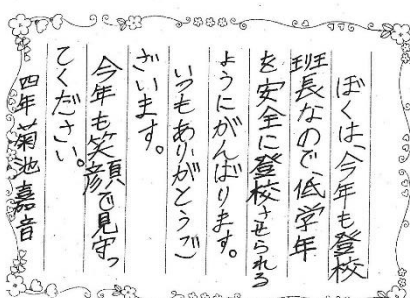 ぼくは、今年も登校
班長なので、低学年
を安全に登校させられる
ようにがんばります。
いつもありがとうご
ざいます。
今年も笑顔で見守っ
てください。
四年菊池嘉音